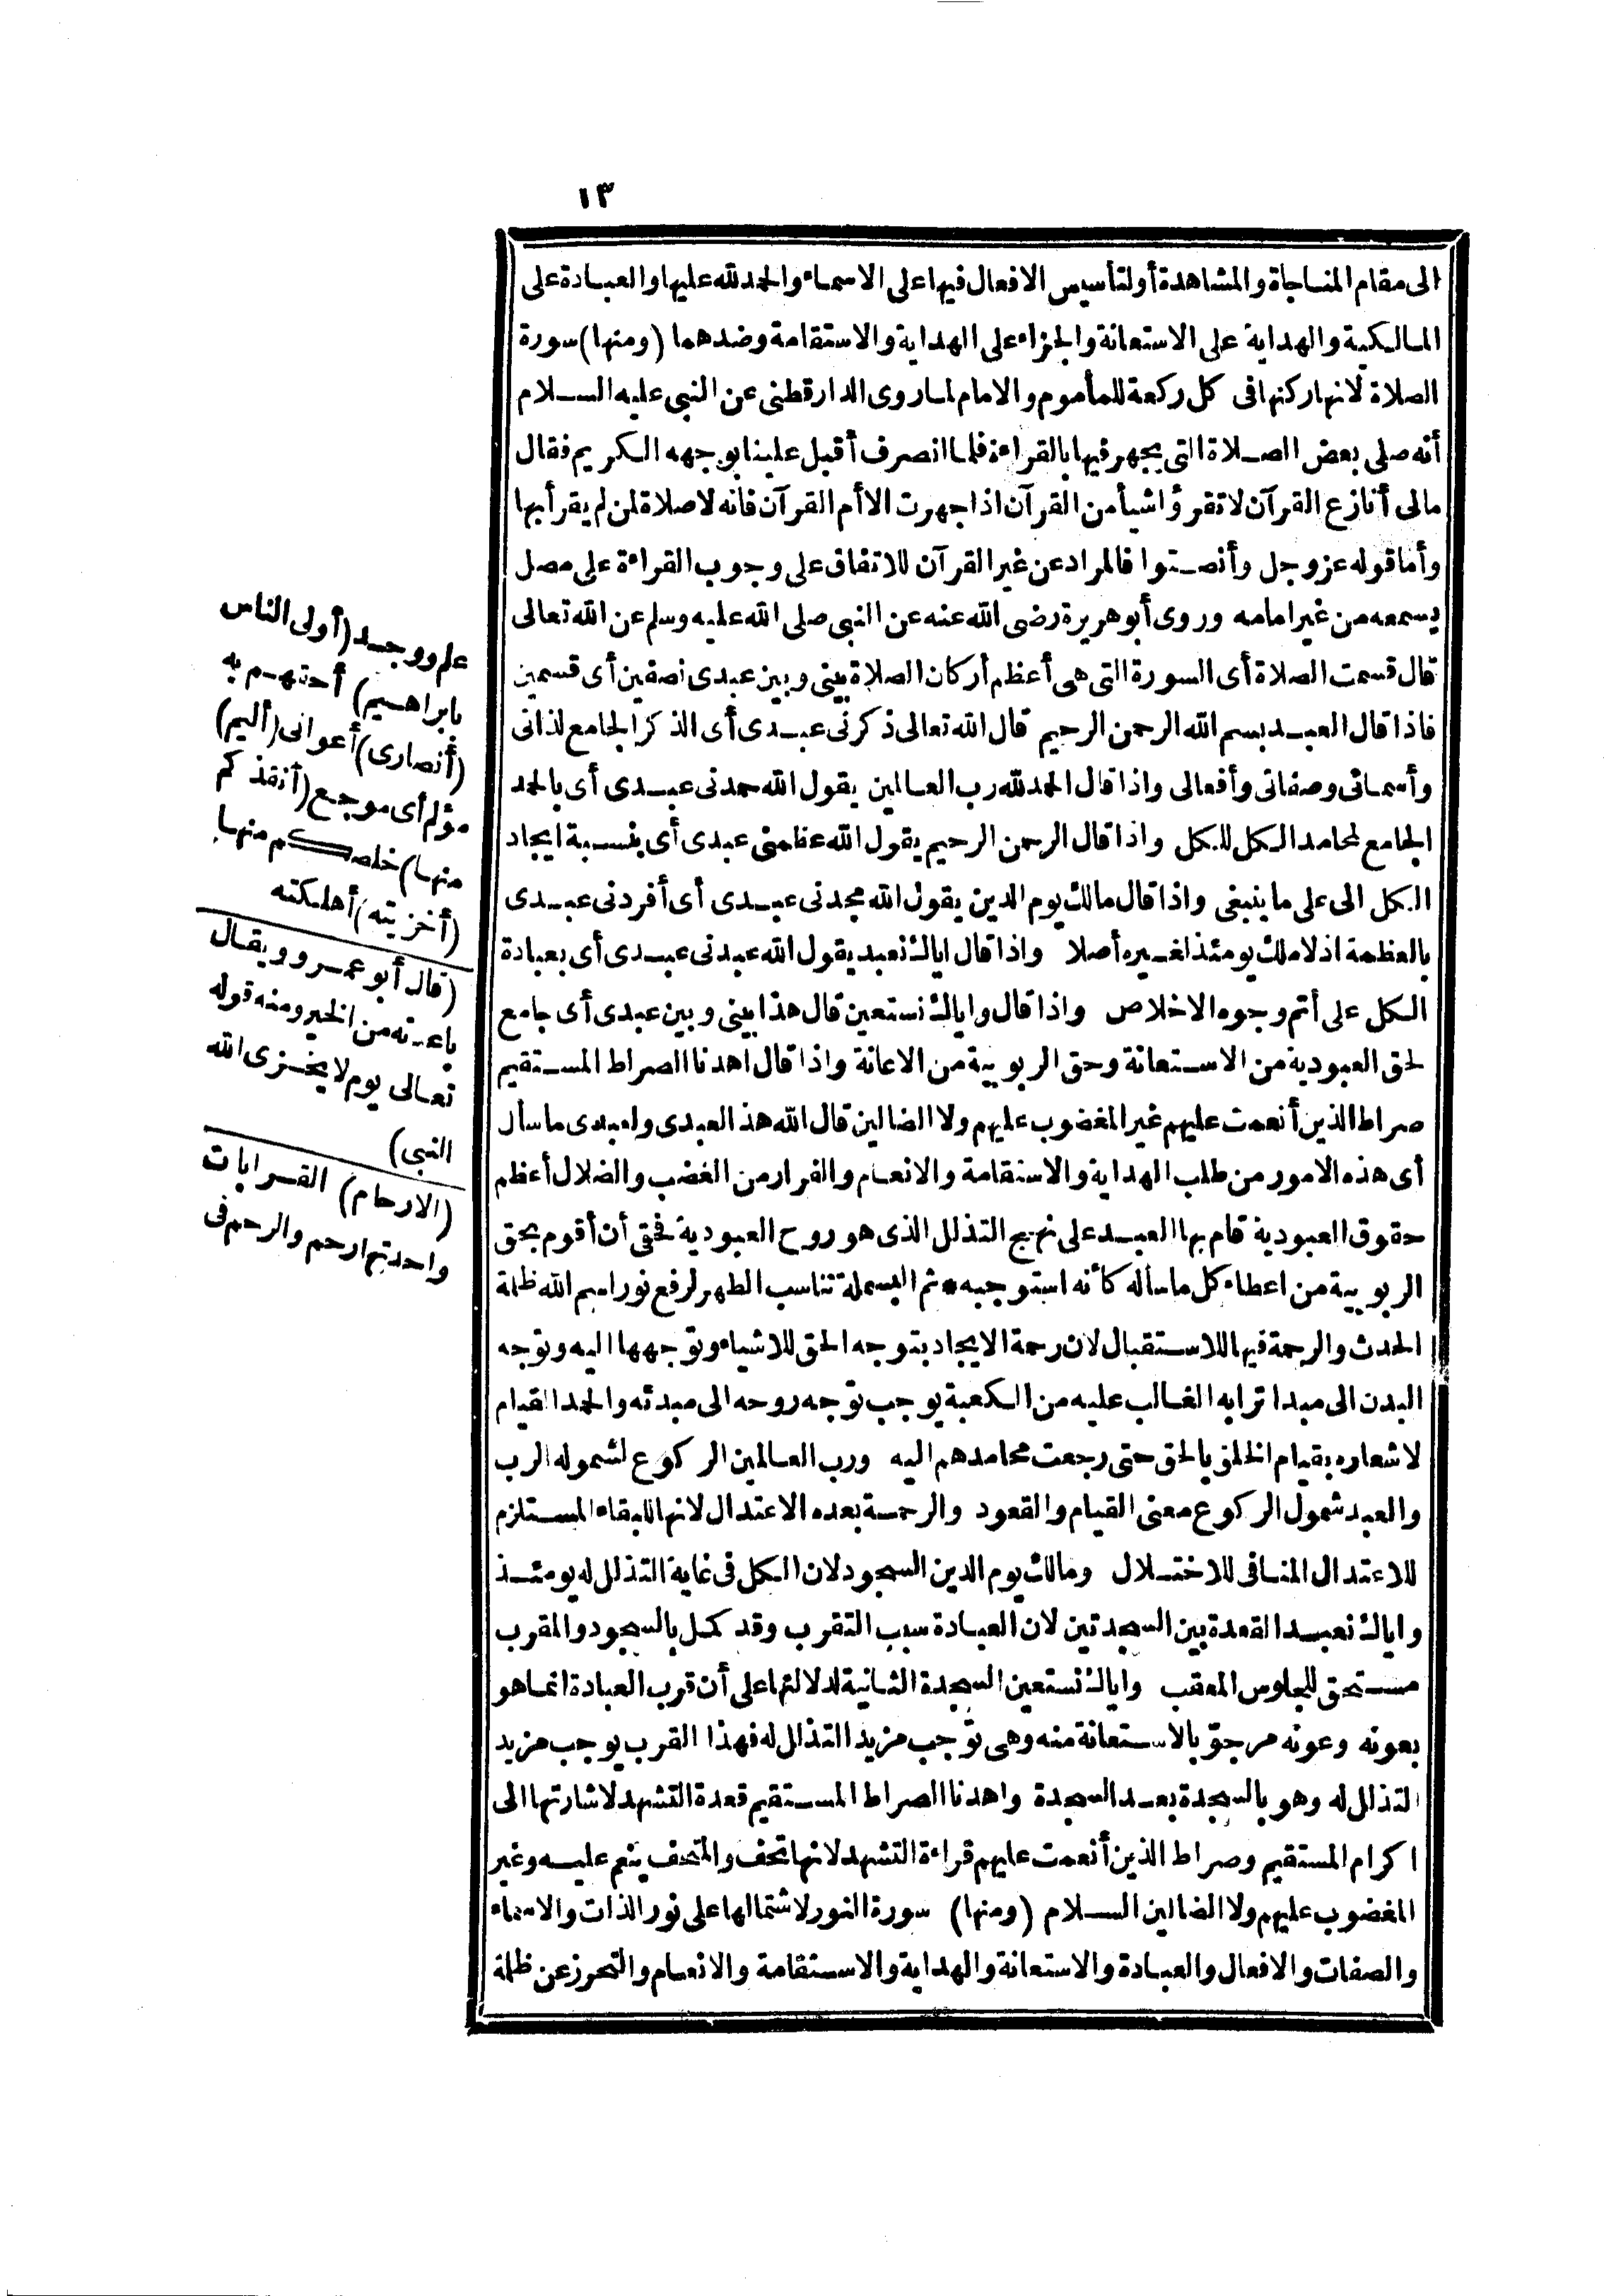 ١٣
الى مقام المناجاة والمشاهدة أولتأسيس الافعال فيها على الاسماء والحمد لله عليها والعبادة على
المالكية والهداية على الاستعانة والجزاء على الهداية والاستقامة وضدهما (ومنها) سورة
الصلاة لانها ركنها فى كل ركعة للمأموم والامام لما روى الدارقطنى عن النبى عليه السلام
أنه صلى بعض الصلاة التى يجهر فيها بالقراءة فلما انصرف أقبل علينا بوجهه الكريم فقال
مالى أنازع القرآن لا تقرؤا شيأ من القرآن اذا جهرت الا أم القرآن فانه لا صلاة لمن لم يقرأ بها
وأما قوله عز وجل وأنصتوا فالمراد عن غير القرآن للاتفاق على وجوب القراءة على مصل
يسمعه من غير امامه وروى أبو هريرة رضى الله عنه عن النبى صلى الله عليه وسلم عن الله تعالى
قال قسمت الصلاة أى السورة التى هى أعظم أركان الصلاة بينى وبين عبدى نصفين أى قسمين
فاذا قال العبد بسم الله الرحمن الرحيم قال الله تعالى ذكرنى عبدى أى الذكر الجامع لذاتى
وأسمائى وصفاتى وأفعالى واذا قال الحمد لله رب العالمين يقول الله حمدنى عبدى أى بالحمد
الجامع لمحامد الكل للكل واذا قال الرحمن الرحيم يقول الله عظمنى عبدى أى بنسبة ايجاد
الكل الى على ما ينبغى واذا قال مالك يوم الدين يقول الله مجدنى عبدى أى أفردنى عبدى
بالعظمة اذ لا ملك يومئذ لغيره أصلا واذا قال اياك نعبد يقول الله عبدنى عبدى أى بعبادة
الكل على أتم وجوه الاخلاص واذا قال واياك نستعين قال هذا بينى وبين عبدى أى جامع
لحق العبودية من الاستعانة وحق الربوبية من الاعانة واذا قال اهدنا الصراط المستقيم
صراط الذين أنعمت عليهم غير المغضوب عليهم ولا الضالين قال الله هذ العبدى ولعبدى ماسأل
أى هذه الامور من طلب الهداية والاستقامة والانعام والفرار من الغضب والضلال أعظم
حقوق العبودية قام بها العبد على نهج التذلل الذى هو روح العبودية فحقى أن أقوم بحق
الربوبية من اعطاء كل ماسأله كأنه استوجبه * ثم البسملة تناسب الطهر لرفع نور اسم الله ظلمة
الحدث والرحمة فيها للاستقبال لان رحمة الايجاد بتوجه الحق للاشياء وتوجهها اليه وتوجه
البدن الى مبدا ترابه الغالب عليه من الكعبة يوجب توجه روحه الى مبدئه والحمد القيام
لاشعاره بقيام الخلق بالحق حتى رجعت محامدهم اليه ورب العالمين الركوع لشموله الرب
والعبد شمول الركوع معنى القيام والقعود والرحمة بعده الاعتدال لانها للبقاء المستلزم
للاعتدال المنافى للاختلال ومالك يوم الدين السجود لان الكل فى غاية التذلل له يومئذ
واياك نعبد القعدة بين السجدتين لان العبادة سبب التقرب وقد كمل بالسجود والمقرب
مستحق للجلوس المعقب واياك نستعين السجدة الثانية لدلالتها على أن قرب العبادة انما هو
بعونه وعونه مرجوّ بالاستعانة منه وهى توجب مزيد التذلل له فهذا القرب يوجب مزيد
التذلل له وهو بالسجدة بعد السجدة واهدنا الصراط المستقيم قعدة التشهد لاشارتها الى
اكرام المستقيم وصراط الذين أنعمت عليهم قراءة التشهد لانها تحف والمتحف ينعم عليه وغير
المغضوب عليهم ولا الضالين السلام (ومنها) سورة النور لاشتمالها على نور الذات والاسماء
والصفات والافعال والعبادة والاستعانة والهداية والاستقامة والانعام والتحرز عن ظلمة
علم ووجد (أولى الناس
بابراهيم) أحقهم به
(أنصارى) أعوانى (أليم)
مؤلم أى موجع (أنقذكم
منها) خلصكم منها
(أخزيته) أهلكته
(قال أبو عمرو ويقال
باعدته من الخير ومنه قوله
تعالى يوم لا يخزى الله
النبى)
(الارحام) القرابات
واحدتها رحم والرحم فى